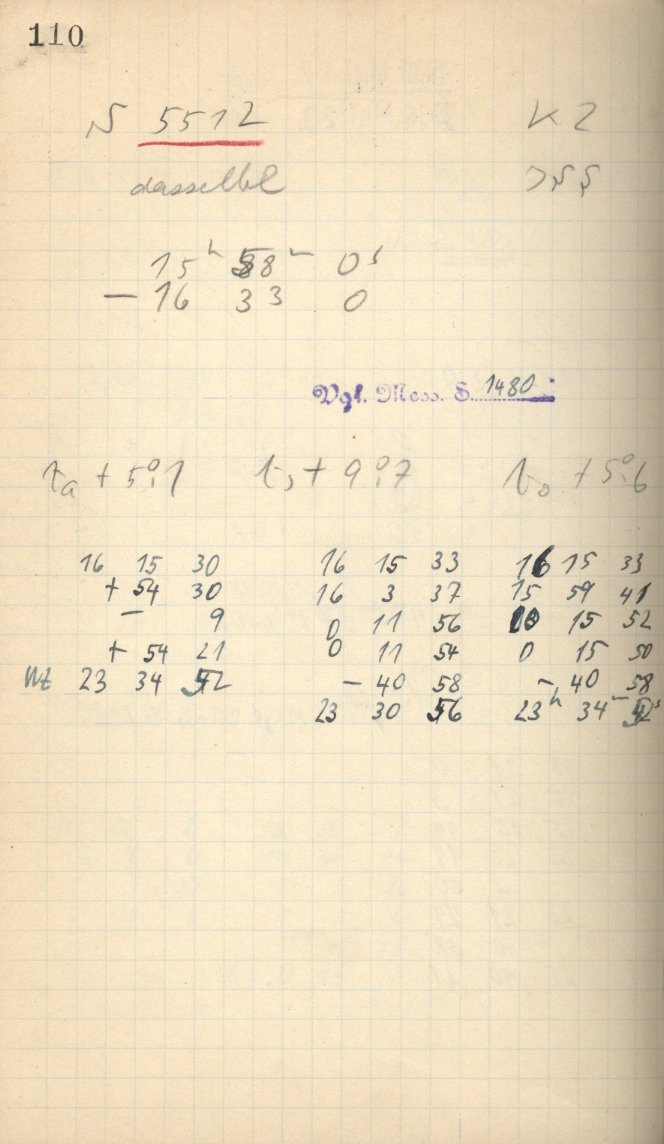 110
N 5512 K 2
dasselbe
15ʰ 58ᵐ 0ˢ
— 16 33 0
Vgl. Mess. S. 1480
tₐ + 5°,1 tₛ + 9°,7 t₀ + 5°,6
16 15 30 16 15 33 16 15 33
+ 54 30 16 3 37 15 59 41
— 9 0 11 56 0 15 52
+ 54 21 0 11 54 0 15 50
Mt 23 34 52 — 40 58 — 40 58
23 30 56 23ʰ 34ᵐ 52ˢ